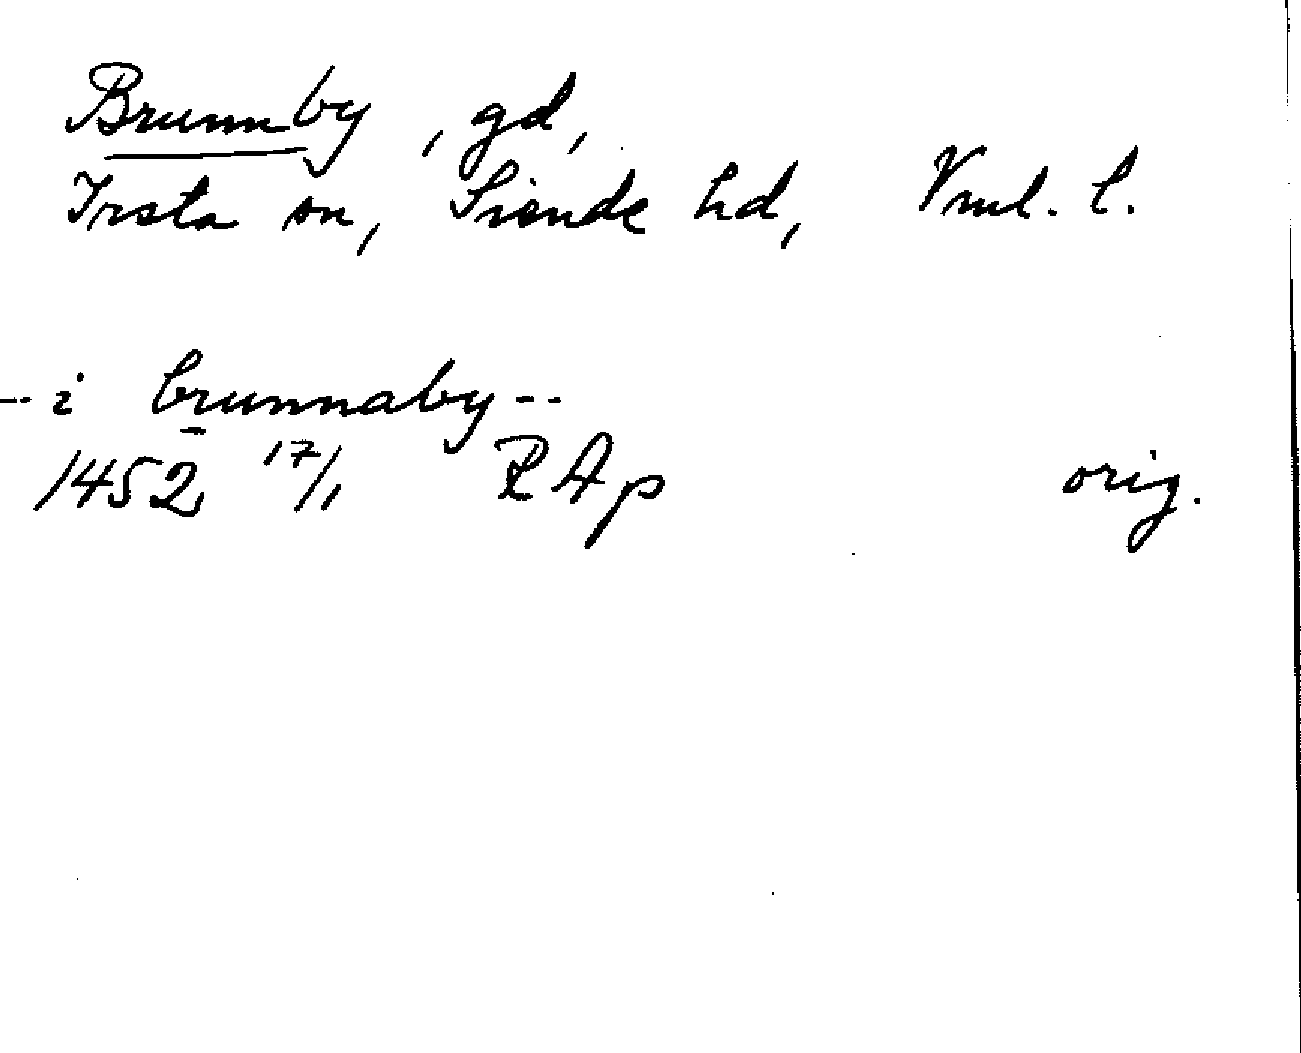 Brunnby, gd,
Irsta sn, Siende hd, Vml. l.
-- i brunnaby --
1452 17/1 RAp orig.